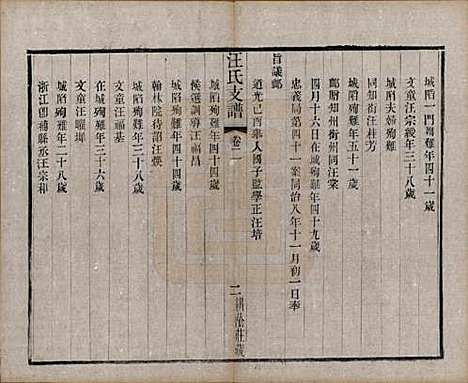 城陷一門殉難年四十一歲
文童汪宗綬年三十八歲
城陷夫婦殉難
同知銜汪桂芳
城陷殉難年五十一歲
鄖階知州銜州同汪棠
四月十六日在城殉難年四十九歲
忠義局第四十一案同治八年十一月初一日奉
旨議卹
道光己酉舉人國子監學正汪培
汪氏支譜
卷二
二
耕蔭莊藏
候選訓導汪福昌
城陷殉難年四十四歲
翰林院待詔汪燨
城陷殉難年四十四歲
文童汪福基
在城殉難年三十六歲
文童汪曜埛
城陷殉難年二十八歲
浙江卽補縣丞汪宗和